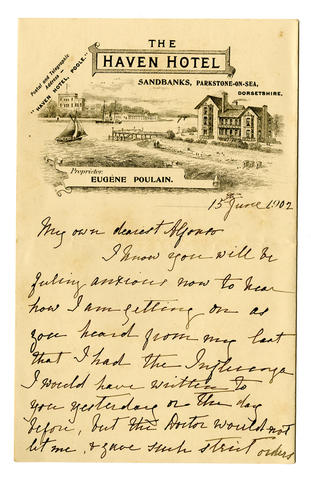 THE
HAVEN HOTEL
SANDBANKS, PARKSTONE-ON-SEA,
DORSETSHIRE.
Postal and Telegraphic
Address
"HAVEN HOTEL, POOLE."
Proprietor:
EUGÈNE POULAIN.
15th June 1902
My own dearest Alfonso
I know you will be
feeling anxious now to hear
how I am getting on as
you heard from my last
that I had the Influenza
I would have written to
you yesterday or the day
before, but the Doctor would not
let me, & gave such strict orders